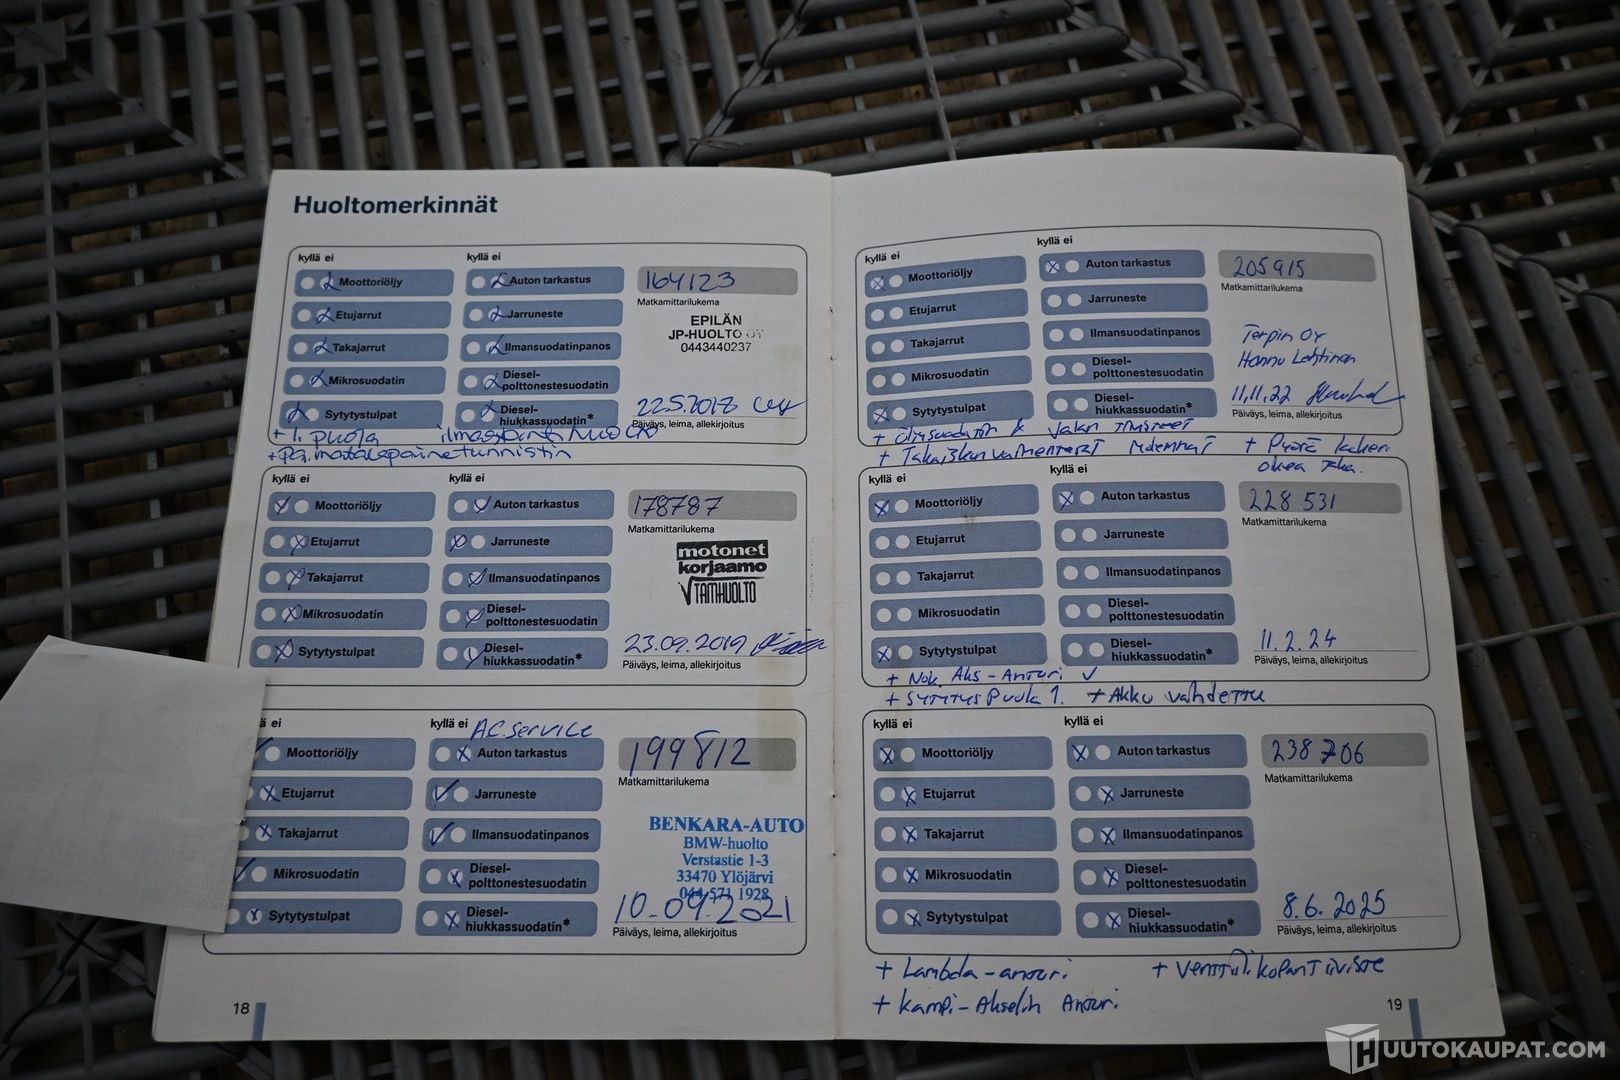 Huoltomerkinnät
kyllä ei
kyllä ei
Moottoriöljy
Auton tarkastus
164123
Matkamittarilukema
Etujarrut
Jarruneste
EPILÄN
JP-HUOLTO OY
0443440237
Takajarrut
Ilmansuodatinpanos
Mikrosuodatin
Diesel-
polttonestesuodatin
Sytytystulpat
Diesel-
hiukkassuodatin*
22.5.2018
Päiväys, leima, allekirjoitus
+ 1. puola
+ pa. matalapainetunnistin
kyllä ei
kyllä ei
Moottoriöljy
Auton tarkastus
178787
Matkamittarilukema
Etujarrut
Jarruneste
motonet
korjaamo
TAMHUOLTO
Takajarrut
Ilmansuodatinpanos
Mikrosuodatin
Diesel-
polttonestesuodatin
Sytytystulpat
Diesel-
hiukkassuodatin*
23.09.2019
Päiväys, leima, allekirjoitus
ei
kyllä ei
A.C. service
Moottoriöljy
Auton tarkastus
199812
Matkamittarilukema
Etujarrut
Jarruneste
BENKARA-AUTO
BMW-huolto
Verstastie 1-3
33470 Ylöjärvi
044 571 1928
Takajarrut
Ilmansuodatinpanos
Mikrosuodatin
Diesel-
polttonestesuodatin
Sytytystulpat
Diesel-
hiukkassuodatin*
10.09.2021
Päiväys, leima, allekirjoitus
18
kyllä ei
kyllä ei
Moottoriöljy
Auton tarkastus
205915
Matkamittarilukema
Etujarrut
Jarruneste
Takajarrut
Ilmansuodatinpanos
Terpin Oy
Hannu Lehtinen
Mikrosuodatin
Diesel-
polttonestesuodatin
Sytytystulpat
Diesel-
hiukkassuodatin*
11.11.22
Päiväys, leima, allekirjoitus
+ Öljysuodatin & jalan tiivisteet
+ Takaiskunvaimentimet molemmat
+ Pyörä
oikea taka.
kyllä ei
kyllä ei
Moottoriöljy
Auton tarkastus
228 531
Matkamittarilukema
Etujarrut
Jarruneste
Takajarrut
Ilmansuodatinpanos
Mikrosuodatin
Diesel-
polttonestesuodatin
Sytytystulpat
Diesel-
hiukkassuodatin*
11.2.24
Päiväys, leima, allekirjoitus
+ Nok. Aks-Anturi V
+ Sytytyspuola 1. + Akku vaihdettu
kyllä ei
kyllä ei
Moottoriöljy
Auton tarkastus
238 706
Matkamittarilukema
Etujarrut
Jarruneste
Takajarrut
Ilmansuodatinpanos
Mikrosuodatin
Diesel-
polttonestesuodatin
Sytytystulpat
Diesel-
hiukkassuodatin*
8.6.2025
Päiväys, leima, allekirjoitus
+ Lambda-anturi
+ Venttiilikopan tiiviste
+ Kampi-Akselin Anturi
19
HUUTOKAUPAT.COM